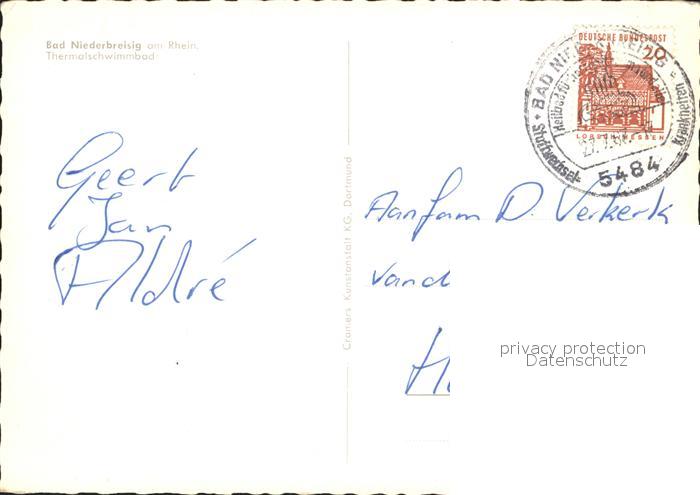 Bad Niederbreisig am Rhein,
Thermalschwimmbad
Geert
Jan
André
Cramers Kunstanstalt KG, Dortmund
DEUTSCHE BUNDESPOST
20
LORSCH/HESSEN
BAD NIEDERBREISIG
Heilbad für
Stoffwechsel-
Krankheiten
5484
Aan fam D. Verkerk
privacy protection
Datenschutz